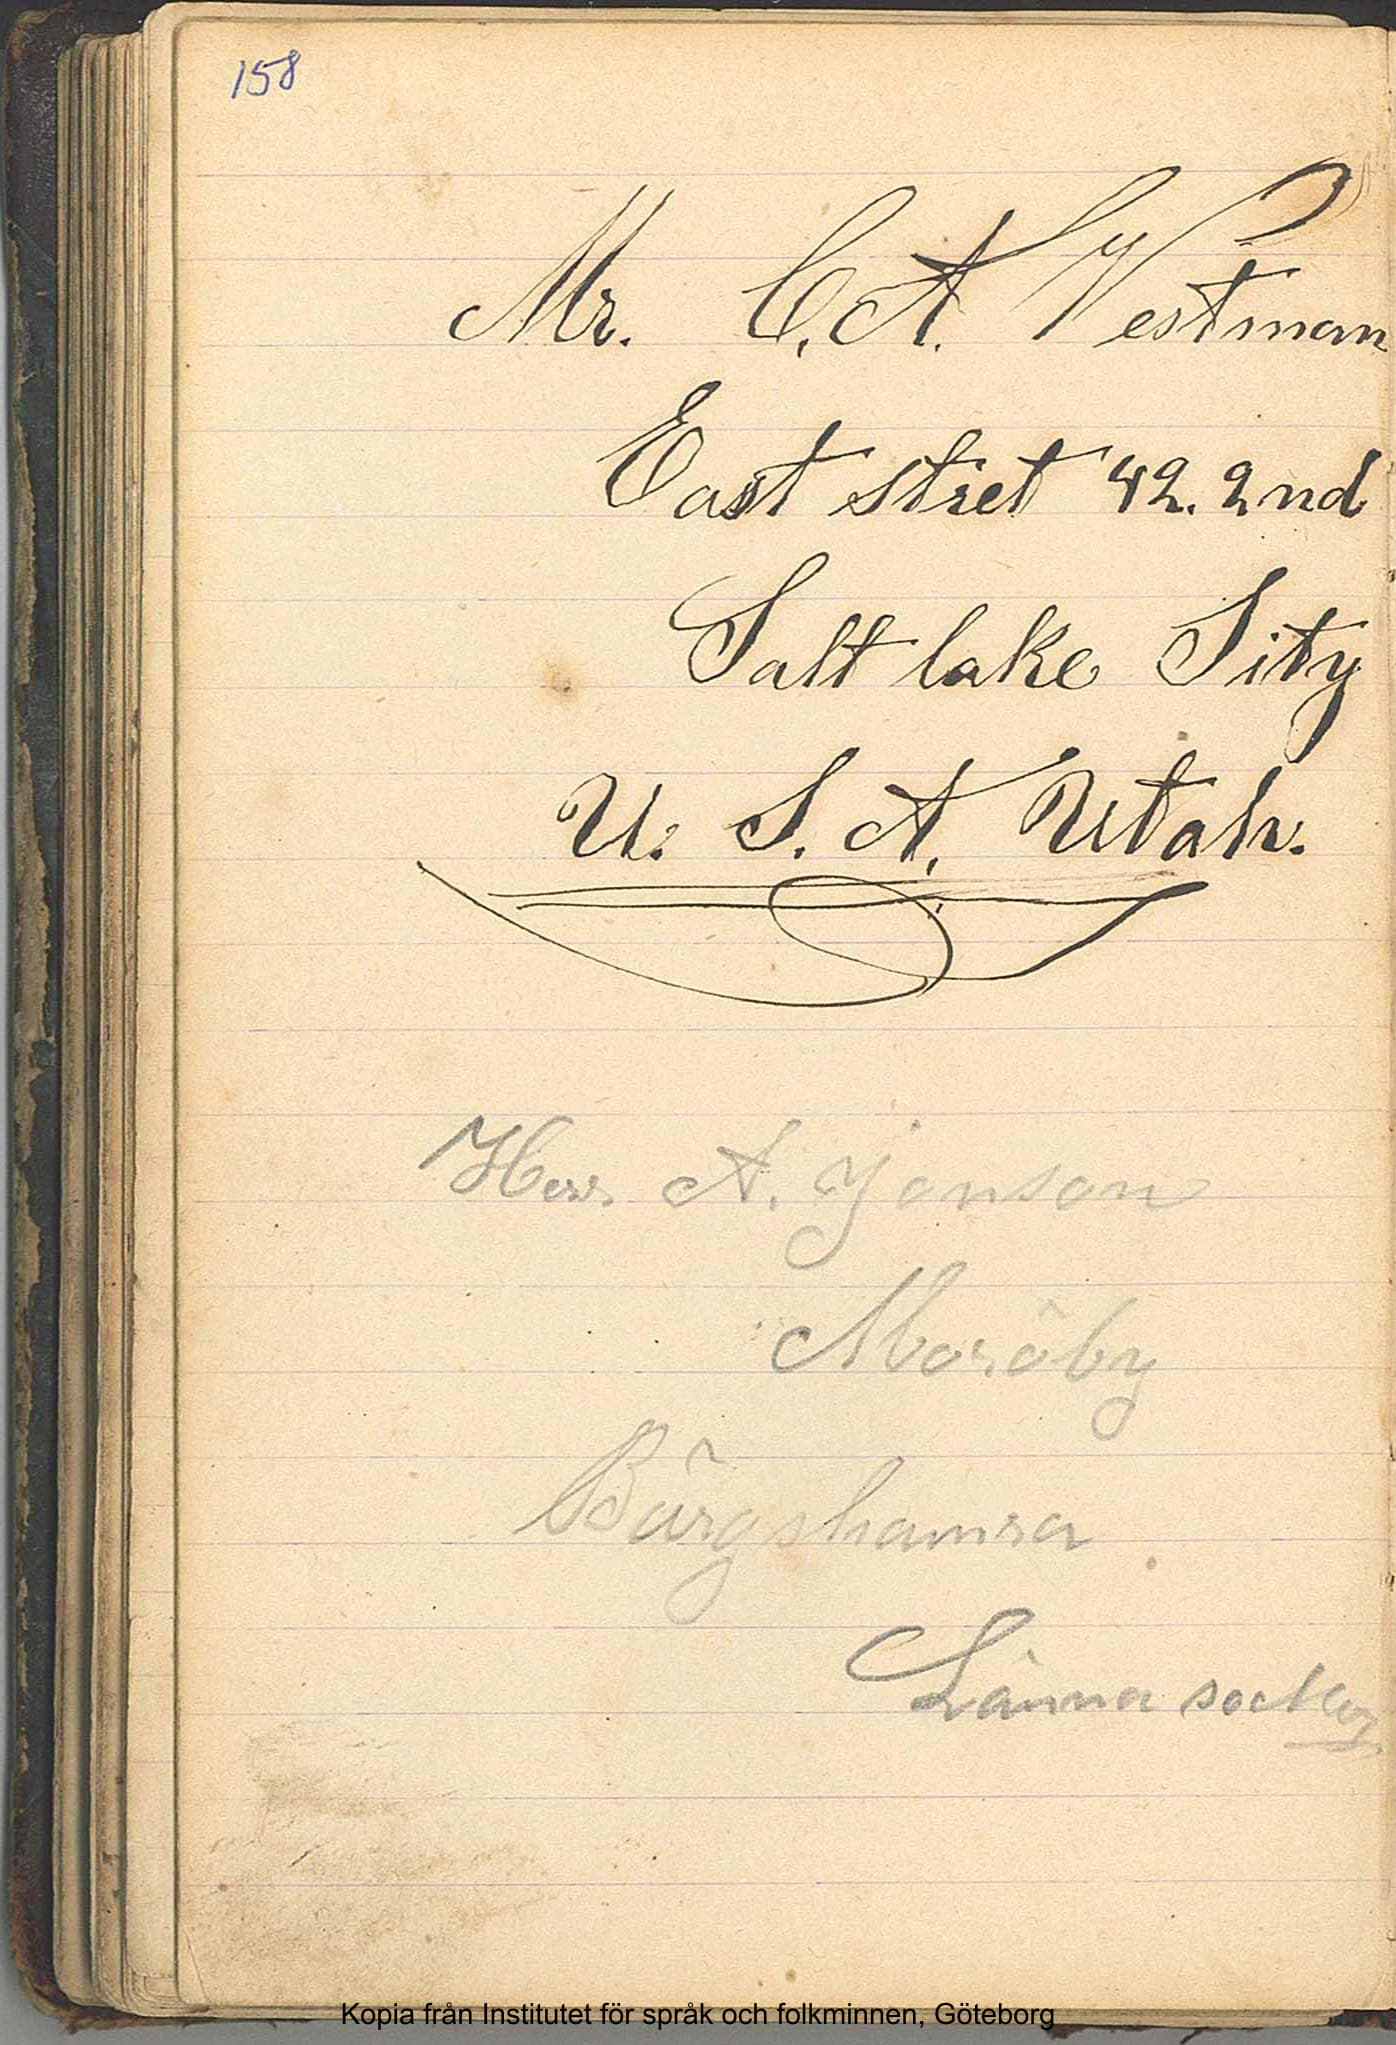 158
Mr. C. A. Westman
East stret 42. 2nd
Salt lake Sity
U. S. A. Utah.
Herr A. Jonson
Moröby
Bärgshamra
Länna
Kopia från Institutet för språk och folkminnen, Göteborg